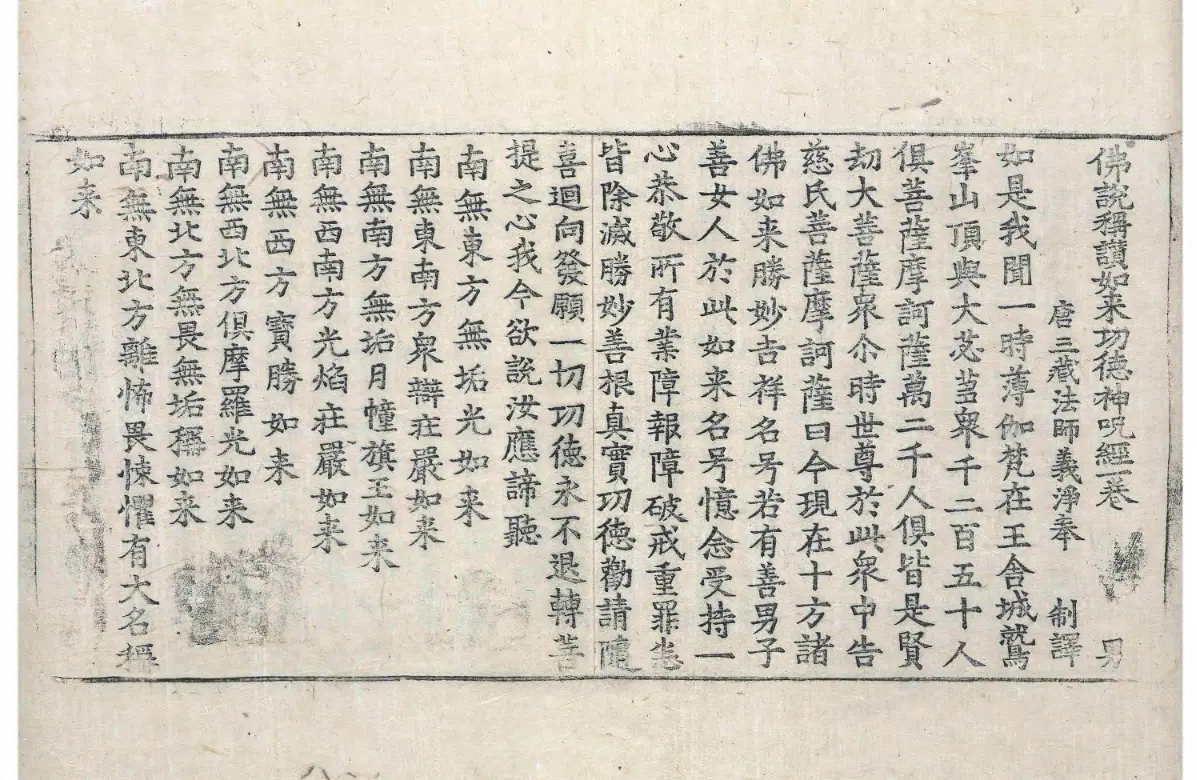 佛說稱讚如来功德神呪經一巻 男
唐三藏法師義淨奉 制譯
如是我聞一時薄伽梵在王舎城鷲
峯山頂與大苾芻衆千二百五十人
俱菩薩摩訶薩萬二千人俱皆是賢
劫大菩薩衆尒時世尊於此衆中告
慈氏菩薩摩訶薩曰今現在十方諸
佛如来勝妙吉祥名号若有善男子
善女人於此如来名号憶念受持一
心恭敬所有業障報障破戒重罪悉
皆除滅勝妙善根真實功德勸請隨
喜迴向發願一切功德永不退轉菩
提之心我今欲說汝應諦聽
南無東方無垢光如来
南無東南方衆辯莊嚴如来
南無南方無垢月幢旗王如来
南無西南方光焰莊嚴如来
南無西方寶勝如来
南無西北方俱摩羅光如来
南無北方無畏無垢稱如来
南無東北方離怖畏悚懼有大名稱
如来